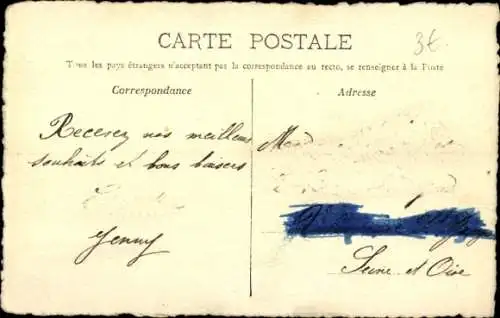 CARTE POSTALE
3€
Tous les pays étrangers n'acceptant pas la correspondance au recto, se renseigner à la Poste
Correspondance
Adresse
Recevez nos meilleurs
souhaits et bons baisers
Jenny
Seine et Oise